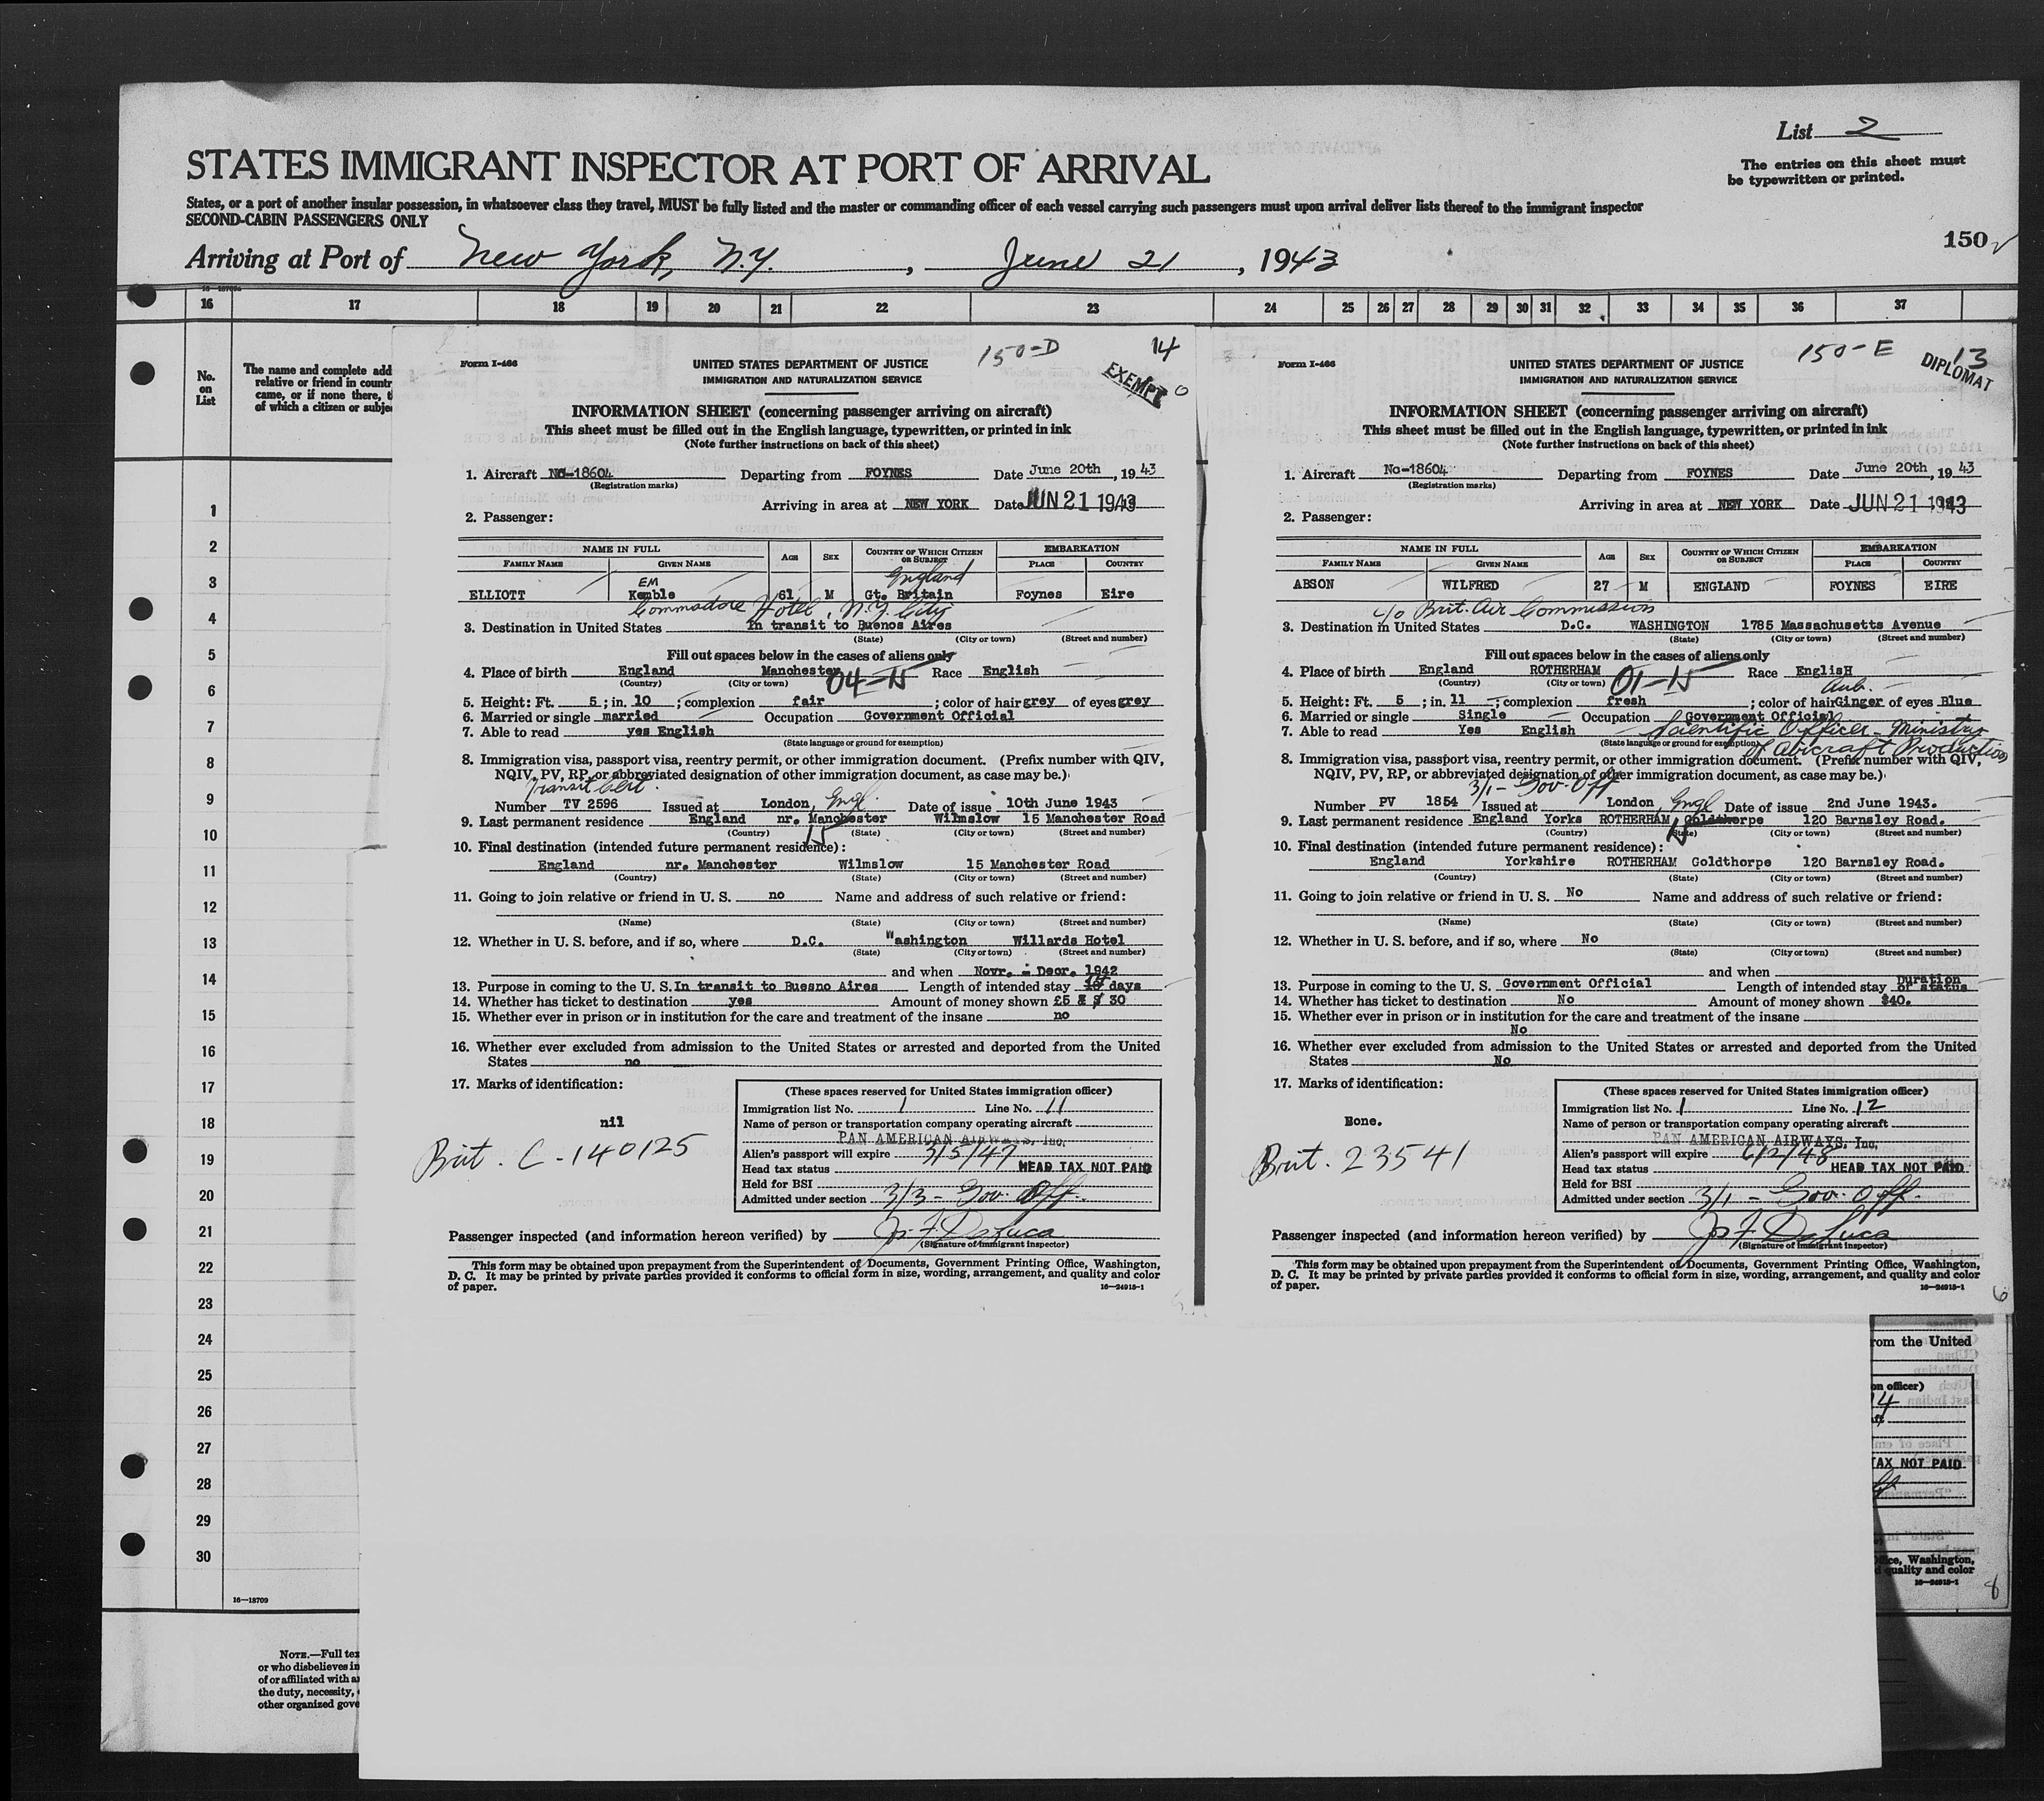 List 2
The entries on this sheet must
be typewritten or printed.
STATES IMMIGRANT INSPECTOR AT PORT OF ARRIVAL
States, or a port of another insular possession, in whatsoever class they travel, MUST be fully listed and the master or commanding officer of each vessel carrying such passengers must upon arrival deliver lists thereof to the immigrant inspector
SECOND-CABIN PASSENGERS ONLY
150
Arriving at Port of New York, N.Y. , June 21 , 1943
16 17 18 19 20 21 22 23 24 25 26 27 28 29 30 31 32 33 34 35 36 37
No.
on
List
The name and complete add
relative or friend in countr
came, or if none there, t
of which a citizen or subje
1
2
3
4
5
6
7
8
9
10
11
12
13
14
15
16
17
18
19
20
21
22
23
24
25
26
27
28
29
30
16—18709
NOTE.—Full tex
or who disbelieves in
of or affiliated with a
the duty, necessity,
other organized gove
Form I-466
150-D
14
EXEMPT
UNITED STATES DEPARTMENT OF JUSTICE
IMMIGRATION AND NATURALIZATION SERVICE
INFORMATION SHEET (concerning passenger arriving on aircraft)
This sheet must be filled out in the English language, typewritten, or printed in ink
(Note further instructions on back of this sheet)
1. Aircraft NC-18604 Departing from FOYNES Date June 20th, 1943
(Registration marks)
Arriving in area at NEW YORK Date JUN 21 1943
2. Passenger:
NAME IN FULL AGE SEX COUNTRY OF WHICH CITIZEN OR SUBJECT EMBARKATION
FAMILY NAME GIVEN NAME PLACE COUNTRY
EM England
ELLIOTT Kemble 61 M Gt. Britain Foynes Eire
Commodore Hotel, N.Y. City
3. Destination in United States In transit to Buenos Aires
(State) (City or town) (Street and number)
Fill out spaces below in the cases of aliens only
4. Place of birth England Manchester Race English
(Country) (City or town) 04-15
5. Height: Ft. 5 ; in. 10 ; complexion fair ; color of hair grey of eyes grey
6. Married or single married Occupation Government Official
7. Able to read yes English
(State language or ground for exemption)
8. Immigration visa, passport visa, reentry permit, or other immigration document. (Prefix number with QIV,
NQIV, PV, RP, or abbreviated designation of other immigration document, as case may be.)
Transit Cert.
Number TV 2596 Issued at London, Engl. Date of issue 10th June 1943
9. Last permanent residence England nr. Manchester Wilmslow 15 Manchester Road
(Country) 15 (State) (City or town) (Street and number)
10. Final destination (intended future permanent residence):
England nr. Manchester Wilmslow 15 Manchester Road
(Country) (State) (City or town) (Street and number)
11. Going to join relative or friend in U. S. no Name and address of such relative or friend:
(Name) (State) (City or town) (Street and number)
12. Whether in U. S. before, and if so, where D.C. Washington Willards Hotel
(State) (City or town) (Street and number)
and when Novr. - Decr. 1942
13. Purpose in coming to the U. S. In transit to Buesno Aires Length of intended stay days
14. Whether has ticket to destination yes Amount of money shown £5 & $ 30
15. Whether ever in prison or in institution for the care and treatment of the insane no
16. Whether ever excluded from admission to the United States or arrested and deported from the United
States no
17. Marks of identification:
nil
Brit. C-140125
(These spaces reserved for United States immigration officer)
Immigration list No. 1 Line No. 11
Name of person or transportation company operating aircraft
PAN AMERICAN AIRWAYS, Inc.
Alien's passport will expire 3/5/47
Head tax status HEAD TAX NOT PAID
Held for BSI
Admitted under section 3/3 - Gov. Off.
Passenger inspected (and information hereon verified) by Jos F DeLuca
(Signature of immigrant inspector)
This form may be obtained upon prepayment from the Superintendent of Documents, Government Printing Office, Washington,
D. C. It may be printed by private parties provided it conforms to official form in size, wording, arrangement, and quality and color
of paper. 16—24915-1
Form I-466
150-E
13
DIPLOMAT
UNITED STATES DEPARTMENT OF JUSTICE
IMMIGRATION AND NATURALIZATION SERVICE
INFORMATION SHEET (concerning passenger arriving on aircraft)
This sheet must be filled out in the English language, typewritten, or printed in ink
(Note further instructions on back of this sheet)
1. Aircraft Nc-18604 Departing from FOYNES Date June 20th, 1943
(Registration marks)
Arriving in area at NEW YORK Date JUN 21 1943
2. Passenger:
NAME IN FULL AGE SEX COUNTRY OF WHICH CITIZEN OR SUBJECT EMBARKATION
FAMILY NAME GIVEN NAME PLACE COUNTRY
ABSON WILFRED 27 M ENGLAND FOYNES EIRE
c/o Brit. Air Commission
3. Destination in United States D.C. WASHINGTON 1785 Massachusetts Avenue
(State) (City or town) (Street and number)
Fill out spaces below in the cases of aliens only
4. Place of birth England ROTHERHAM Race EnglisH
(Country) (City or town) 01-15 Aub.
5. Height: Ft. 5 ; in. 11 ; complexion fresh ; color of hair Ginger of eyes Blue
6. Married or single Single Occupation Government Official
7. Able to read Yes English Scientific Officer - Ministry
(State language or ground for exemption) of Aircraft Production
8. Immigration visa, passport visa, reentry permit, or other immigration document. (Prefix number with QIV,
NQIV, PV, RP, or abbreviated designation of other immigration document, as case may be.)
3/1 - Gov. Off
Number PV 1854 Issued at London, Engl Date of issue 2nd June 1943.
9. Last permanent residence England Yorks ROTHERHAM Goldthorpe 120 Barnsley Road.
(Country) 15 (State) (City or town) (Street and number)
10. Final destination (intended future permanent residence):
England Yorkshire ROTHERHAM Goldthorpe 120 Barnsley Road.
(Country) (State) (City or town) (Street and number)
11. Going to join relative or friend in U. S. No Name and address of such relative or friend:
(Name) (State) (City or town) (Street and number)
12. Whether in U. S. before, and if so, where No
(State) (City or town) (Street and number)
and when
13. Purpose in coming to the U. S. Government Official Length of intended stay Duration of status
14. Whether has ticket to destination No Amount of money shown $40.
15. Whether ever in prison or in institution for the care and treatment of the insane
No
16. Whether ever excluded from admission to the United States or arrested and deported from the United
States No
17. Marks of identification:
Eone.
Brit. 23541
(These spaces reserved for United States immigration officer)
Immigration list No. 1 Line No. 12
Name of person or transportation company operating aircraft
PAN AMERICAN AIRWAYS, Inc.
Alien's passport will expire 6/2/48
Head tax status HEAD TAX NOT PAID
Held for BSI
Admitted under section 3/1 - Gov. Off.
Passenger inspected (and information hereon verified) by Jos F DeLuca
(Signature of immigrant inspector)
This form may be obtained upon prepayment from the Superintendent of Documents, Government Printing Office, Washington,
D. C. It may be printed by private parties provided it conforms to official form in size, wording, arrangement, and quality and color
of paper. 16—24915-1
6
rom the United
on officer)
14
TAX NOT PAID
ffice, Washington,
d quality and color
16—24915-1
8